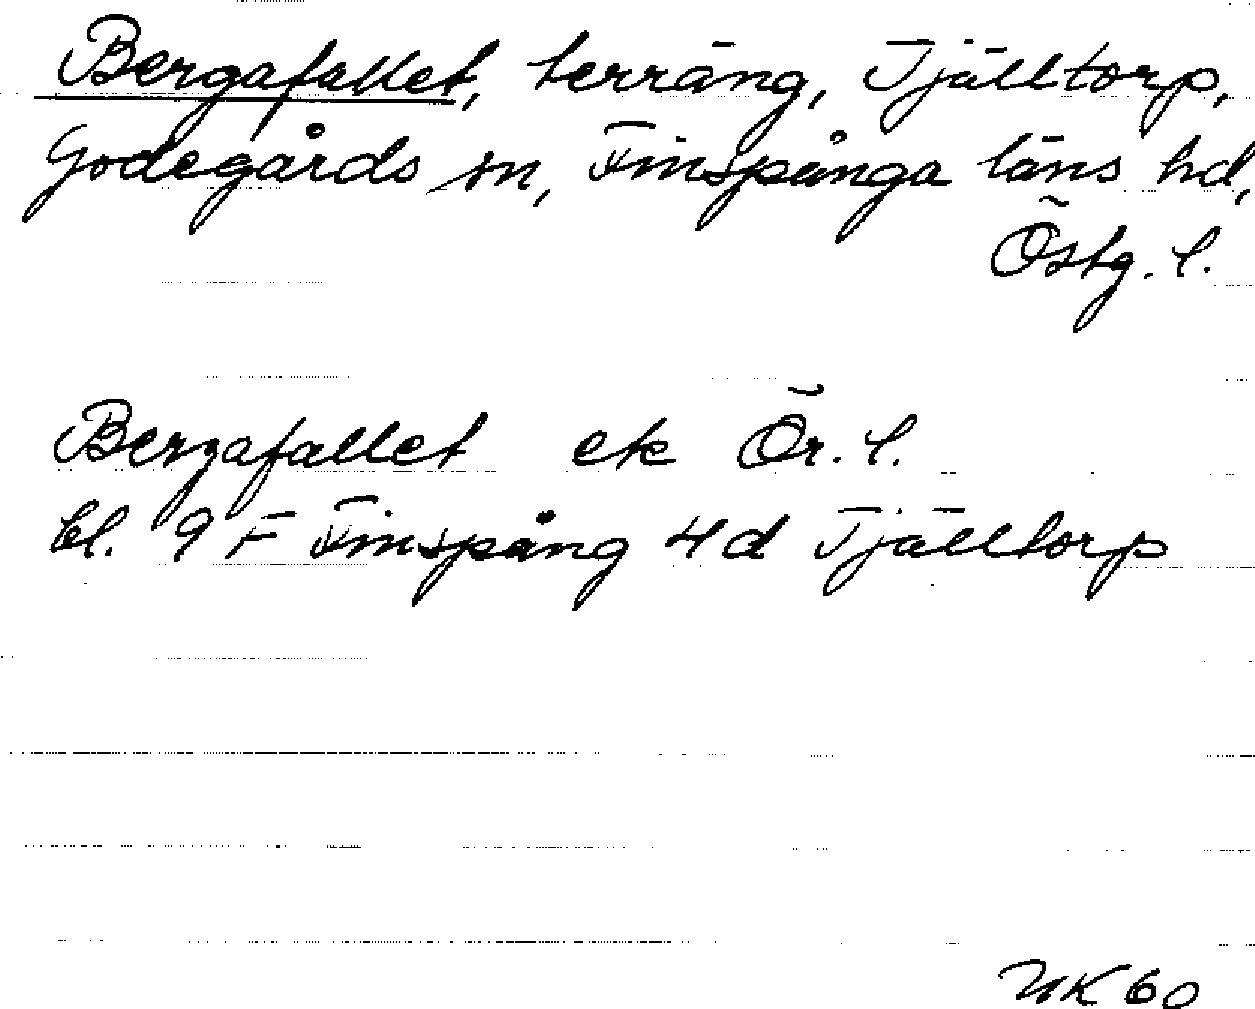 Bergafallet, terräng, Tjälltorp,
Godegårds sn, Finspånga läns hd,
Östg. l.
Bergafallet ek Ör. l.
bl. 9 F Finspång 4d Tjälltorp
NK 60